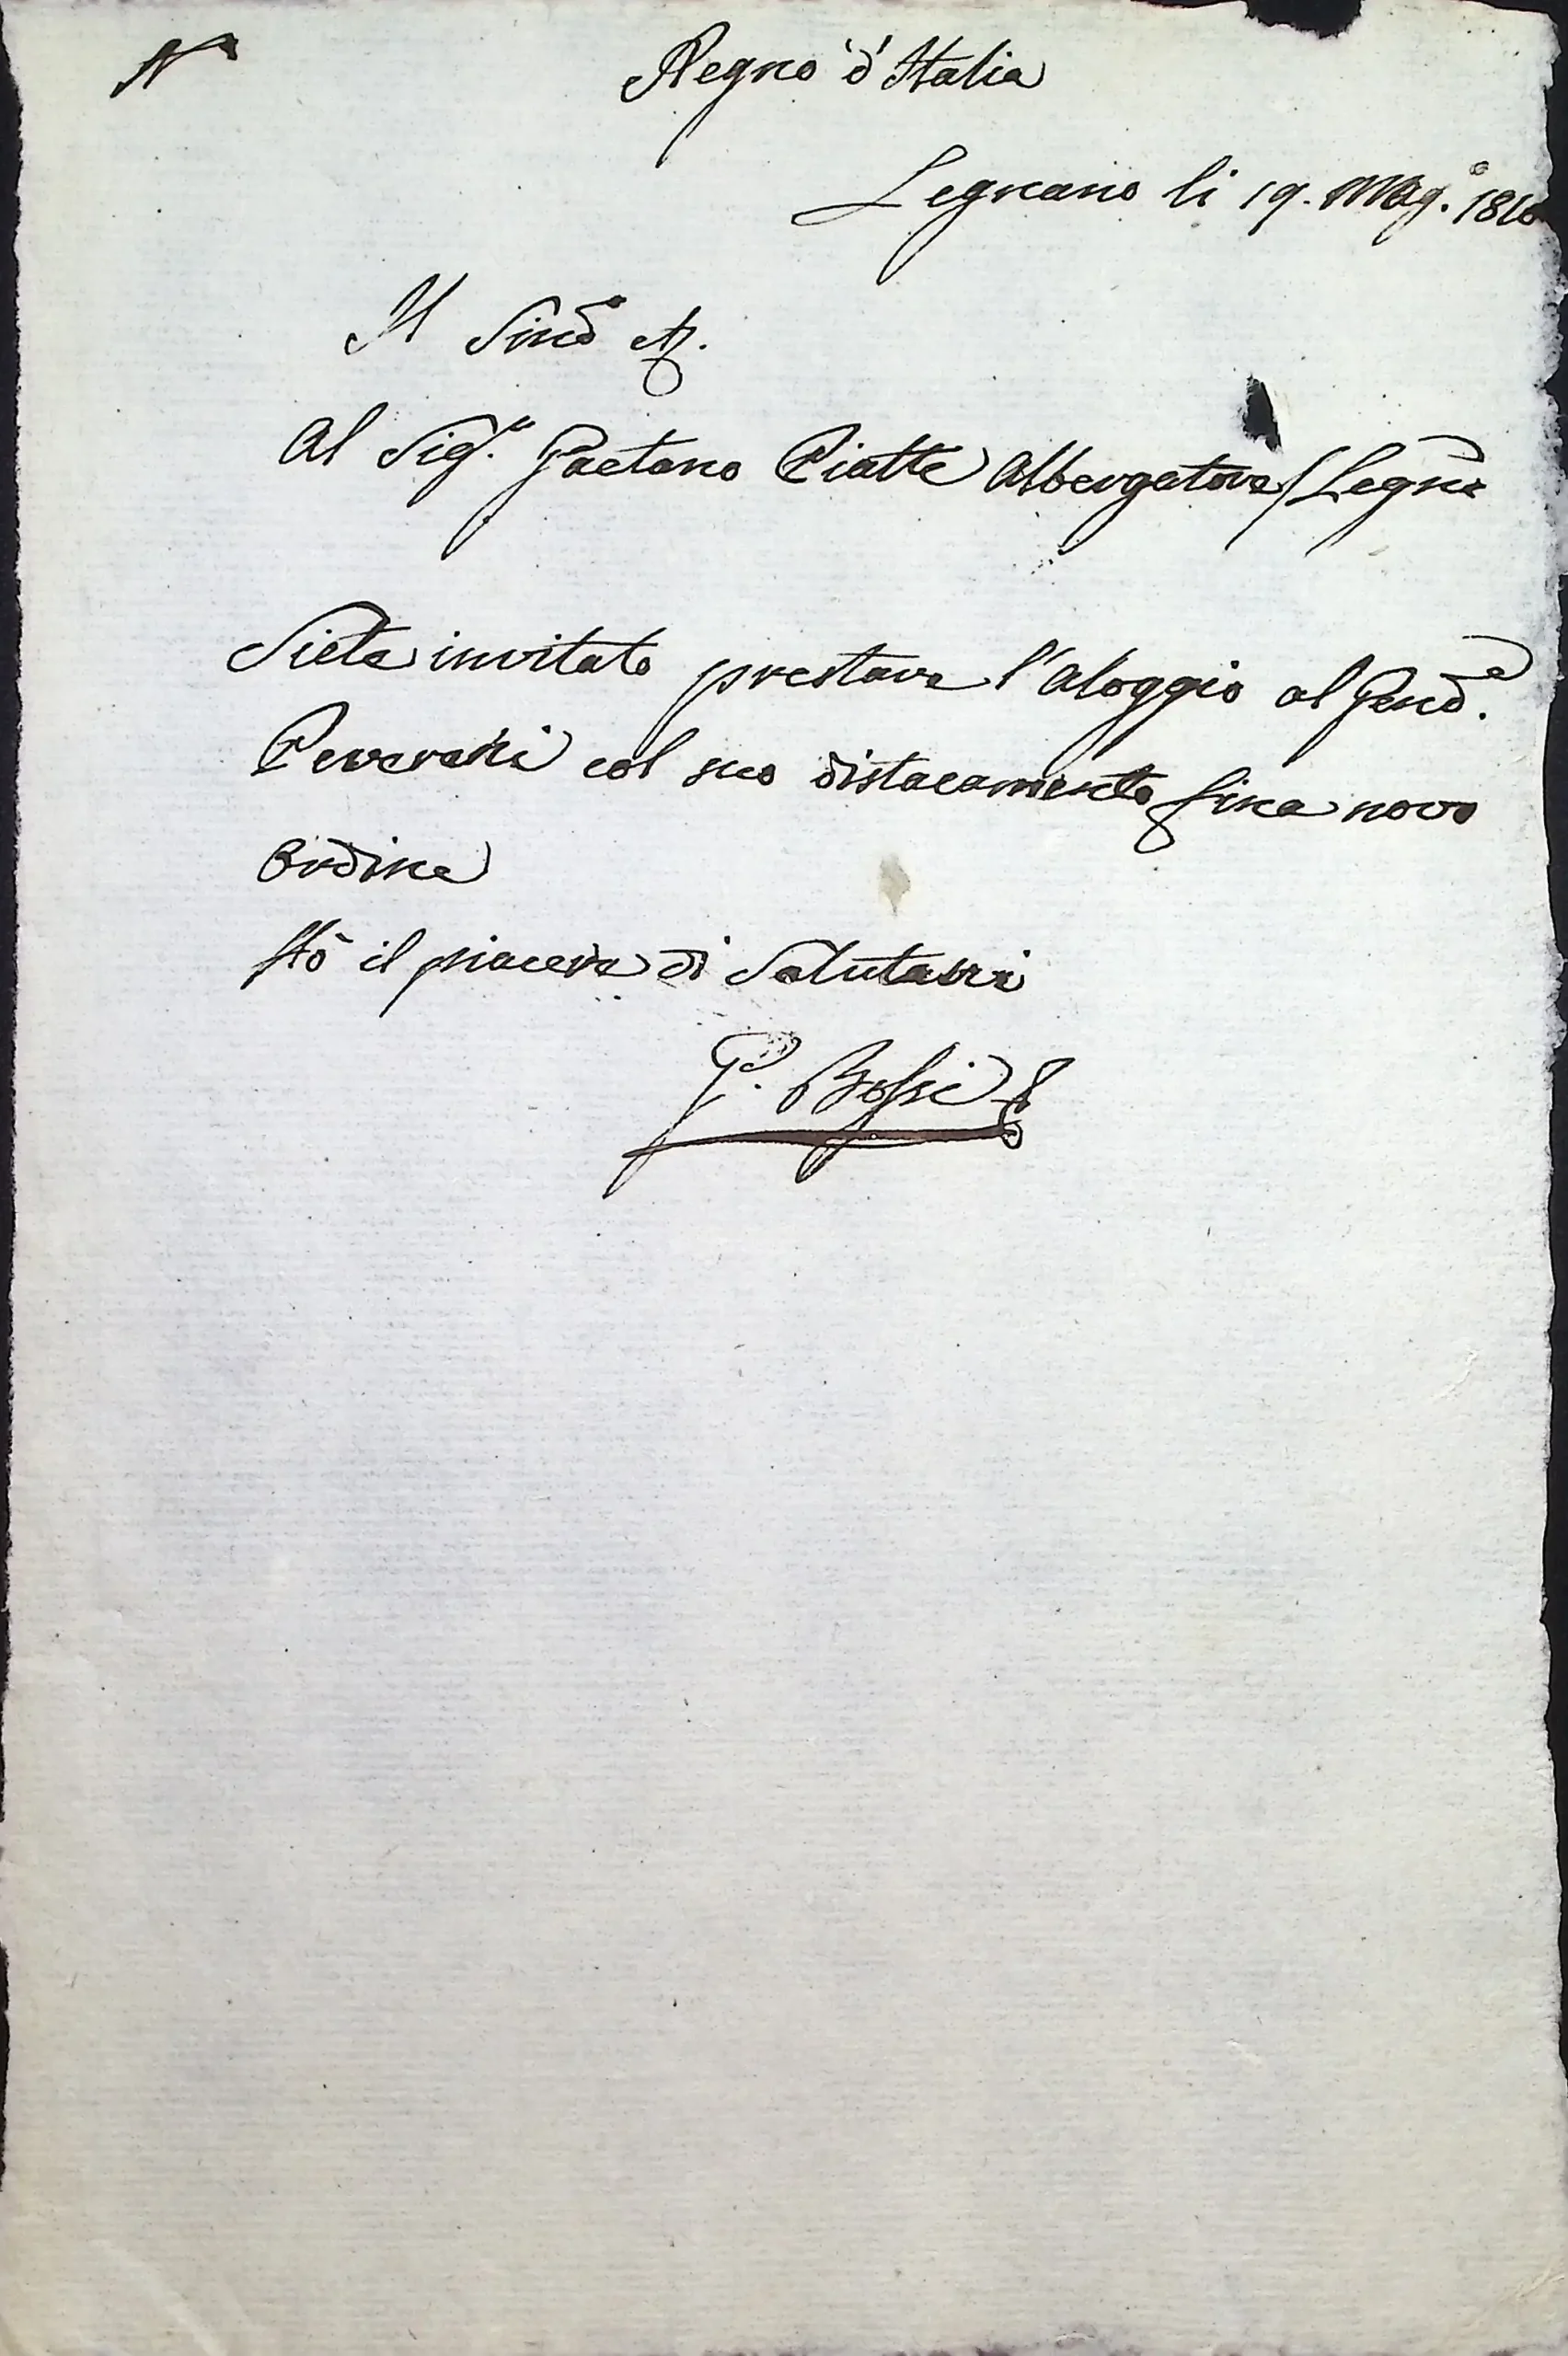 N°
Regno d'Italia
Legnano li 19. Mag.° 1810
Il Sind.° &.
Al Sig.r Gaetano Piatte Albergatore / Legno
Siete invitato prestare l'aloggio al Gend.e
col suo distacamento fina novo
Ordine
Hò il piacere di Salutarvi
G. Bossi